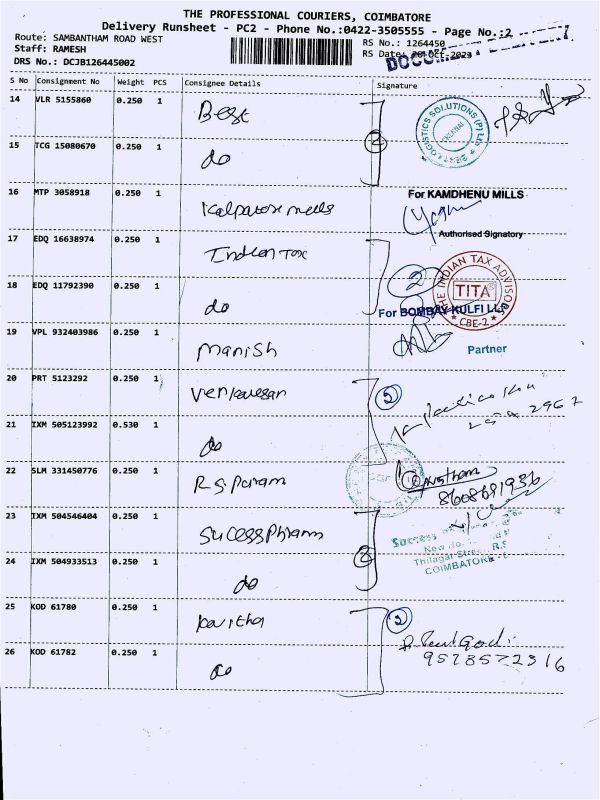 THE PROFESSIONAL COURIERS, COIMBATORE
Delivery Runsheet - PC2 - Phone No.:0422-3505555 - Page No.:2
Route: SAMBANTHAM ROAD WEST
RS No.: 1264450
Staff: RAMESH
RS Date: 20-Oct-2023
DRS No.: DCJB126445002
S No Consignment No Weight PCS Consignee Details Signature
14 VLR 5155860 0.250 1 Best
15 TCG 15080670 0.250 1 do
LOGISTICS SOLUTIONS (P) Ltd
16 MTP 3058918 0.250 1 mills
For KAMDHENU MILLS
Authorised Signatory
17 EDQ 16638974 0.250 1 Indian Tax
2
18 EDQ 11792390 0.250 1 do
THE INDIAN TAX ADVISOR
TITA
CBE-2
For BOMBAY KULFI LLP
19 VPL 932403986 0.250 1 Manish
Partner
20 PRT 5123292 0.250 1
2
21 IXM 505123992 0.530 1 do
22 SLM 331450776 0.250 1 RS Param
8608691936
23 IXM 504546404 0.250 1 Sucess Pharma
Success
Thilagar Street
COIMBATORE
24 IXM 504933513 0.250 1 do
2
25 KOD 61780 0.250 1 Kavitha
2
26 KOD 61782 0.250 1 do
9528572316